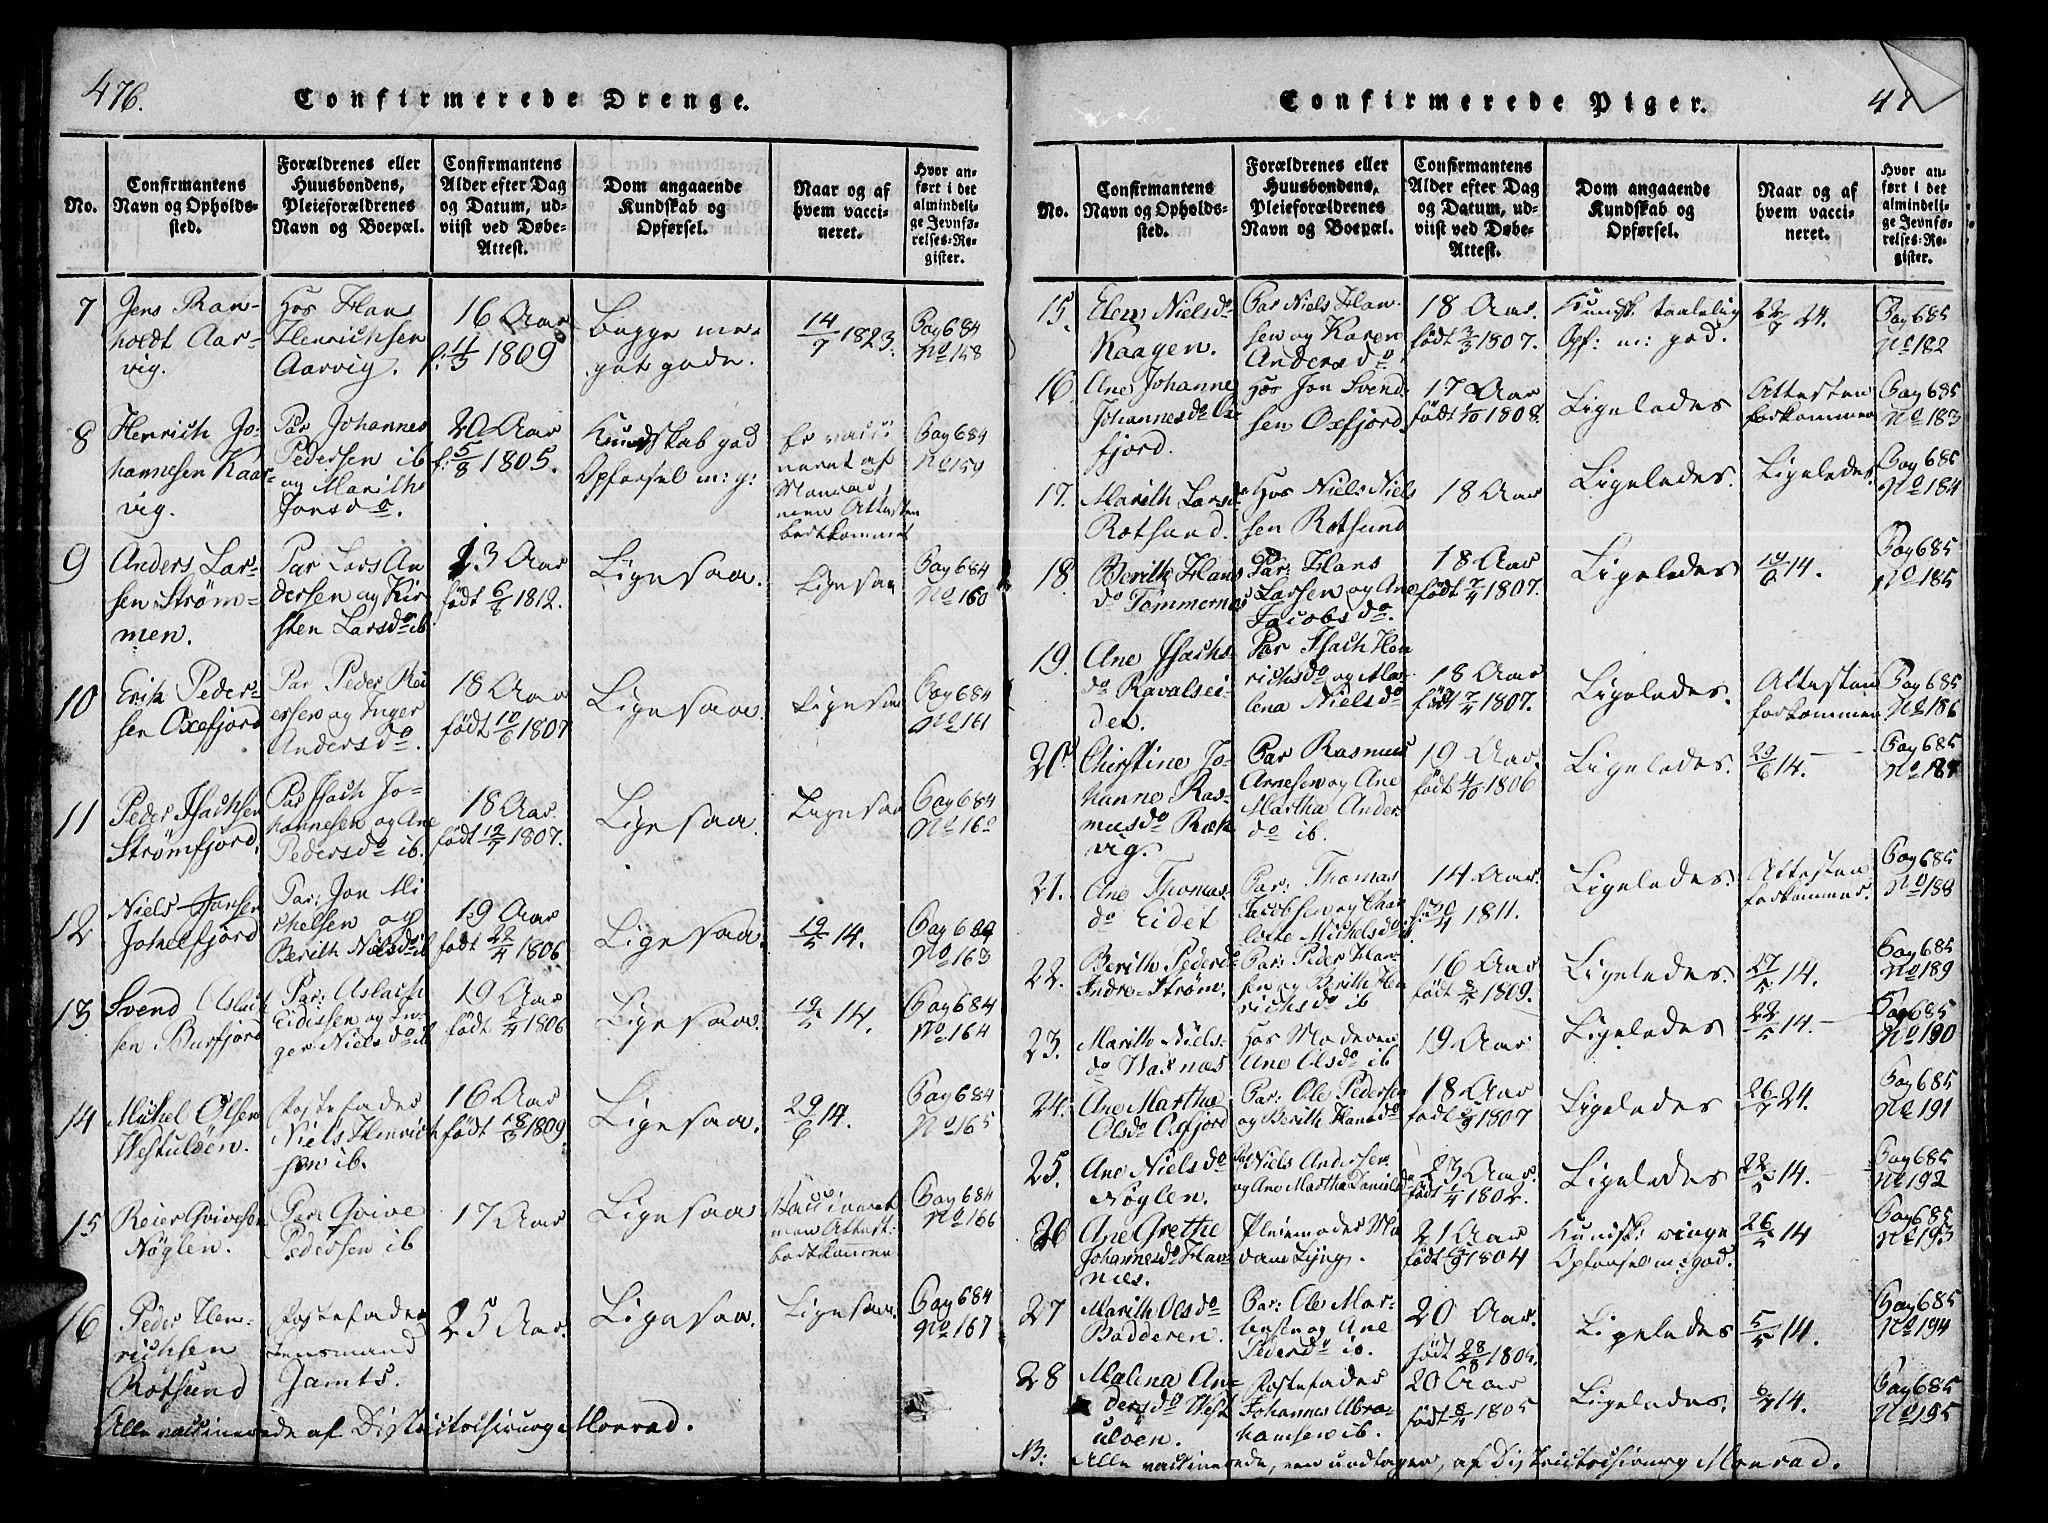 476.
Confirmerede Drenge.
No.
Confirmantens Navn og Opholds-sted.
Forældrenes eller Huusbondens, Pleieforældrenes Navn og Boepæl.
Confirmantens Alder efter Dag og Datum, ud-viist ved Døbe-Attest.
Dom angaaende Kundskab og Opførsel.
Naar og af hvem vacci-neret.
Hvor an-ført i det almindeli-ge Jevnfø-relses-Re-gister.
7
Jens Ran-
holdt Aar-
vig.
Hos Hans
Henrichsen
Aarvig.
16 Aar
f: 11/3 1809
begge me-
get gode.
14/7 1823.
Pag 684
No 158
8
Henrich Jo-
hannesen Kaar-
vig.
Par Johannes
Pedersen ib
og Marith
Jonsdo.
20 Aar
f: 5/8 1805.
Kundskab god
Opførsel m: g:
Er vacci-
neret af
Monrad,
men Attesten
bortkommet
Pag 684
No 159
9
Anders Lar-
sen Strøm-
men.
Par Lars An
dersen og Kir
sten Larsdo ib
13 Aar
født 6/6 1812.
Ligesaa.
Ligesaa
Pag 684
No 160
10
Erich Peder-
sen Oxefjord
Par Peder Rei
ersen og Inger
Andersdo.
18 Aar
født 10/6 1807
Ligesaa.
Ligesaa
Pag 684
No 161
11
Peder Isachsen
Strømfjord.
Par Isach Jo-
hannesen og Ane
Pedersdo ib.
18 Aar
født 12/7 1807.
Ligesaa
Ligesaa
Pag 684
No 162
12
Niels Jonsen
Jokelfjord
Par: Jon Mi
chelsen og
Berith Nielsdo ib
19 Aar
født 22/4 1806
Ligesaa.
19/5 14.
Pag 684
No 163
13
Svend Aslach
sen Burfjord
Par: Aslach
Eidissen og In-
ger Nielsdo ib
19 Aar
født 2/4 1806
Ligesaa.
19/5 14.
Pag 684
No 164
14
Michel Olsen
Westuløen.
Fostefader
Niels Henrich
sen ib.
16 Aar
født 18/3 1809.
Ligesaa.
29/6 14.
Pag 684
No 165
15
Reier Qvivesen
Nøglen.
Par: Qvive
Pedersen ib
17 Aar
Ligesaa
Vaccineret
men Attest.
bortkommen
Pag 684
No 166
16
Peder Hen-
richsen
Rotsund
Fostefader
Lensmand
Jamts.
25 Aar.
Ligesaa.
Ligesaa.
Pag 684
No 167
Alle vaccinerede af Districtschirurg Monrad.
Confirmerede Piger.
47
No.
Confirmantens Navn og Opholds-sted.
Forældrenes eller Huusbondens, Pleieforældrenes Navn og Boepæl.
Confirmantens Alder efter Dag og Datum, ud-viist ved Døbe-Attest.
Dom angaaende Kundskab og Opførsel.
Naar og af hvem vacci-neret.
Hvor an-ført i det almindeli-ge Jevnfø-relses-Re-gister.
15.
Elen Nielsdo
Kaagen.
Par Niels Han-
sen og Karen
Andersdo
18 Aar.
født 3/3 1807.
Kundsk taalelig
Opf: m: god.
22/7 24.
Pag 685
No 182
16
Ane Johanne
Johannesdo Ox
fjord.
Hos Jon Svend-
sen Oxfjord.
17 Aar
født 1808.
Ligeledes
Attesten
forkommen
Pag 685
No 183
17.
Marith Larsdo
Rotsund.
Hos Niels Niel
sen Rotsund
18 Aar
Ligeledes.
Ligeledes
Pag 685
No 184
18.
Berith Hans
do Tømmernes
Par: Hans
Larsen og Ane
Jacobsdo.
18 Aar
født 7/4 1807.
Ligeledes
14/6 14.
Pag 685
No 185
19.
Ane Isachs-
do Ravalsei-
det.
Par Isach Hen
richsdo og Ma-
lena Nielsdo
18 Aar
født 7/4 1807.
Ligeledes.
Attesten
forkommen
Pag 685
No 186
20
Chirstine Jo-
hanne Ras-
musdo Ræk
vig.
Par Rasmus
Arnesen og Ane
Martha Anders
do ib.
19 Aar.
født 4/10 1806
Ligeledes.
29/6 14.
Pag 685
No 187
21.
Ane Thomas-
do Eidet
Par: Thomas
Jacobsen og Char
lotte Michelsdo
14 Aar.
f: 30/4 1811.
Ligeledes.
Attesten
forkommen.
Pag 685
No 188
22.
Berith Pedersdo
Indre-Strøm.
Par: Peder Han-
sen og Berith Hen
richsdo ib
16 Aar
født 1809.
Ligeledes.
27/5 14.
Pag 685
No 189
23.
Marith Niels-
do Warnas
Hos Moderen
Ane Olsdo ib
19 Aar
Ligeledes
22/5 14.
Pag 685
No 190
24.
Ane Martha
Olsdo Oxfjord
Par: Ole Pedersen
og Berith Hansdo
18 Aar
født 1807
Ligeledes
26/7 24.
Pag 685
No 191
25.
Ane Nielsdo
Nøglen.
Par Niels Andersen
og Ane Martha Daniels do
23 Aar.
født 1/4 1802.
Ligeledes
22/5 14.
Pag 685
No 192
26
Ane Grethe
Johannesdo Hav-
næs.
Pleiemoder Ma
rane Lyng.
21 Aar
født 1804
Kundsk: ringe
Opførsel m: god.
26/5 14
Pag 685
No 193
27
Marith Olsdo
Badderen.
Par: Ole Mor-
tensen og Ane
Pedersdo ib.
20 Aar.
født 28/8 1805.
Ligeledes
5/5 14.
Pag 685
No 194
28
Malena An-
dersdo West
uløen.
Fostefader
Johannes Abra-
hamsen ib.
20 Aar
født 8/4 1805
Ligeledes.
14.
Pag 685
No 195
NB:
Alle vaccinerede, een undtagen, af Districtschirurg Monrad.